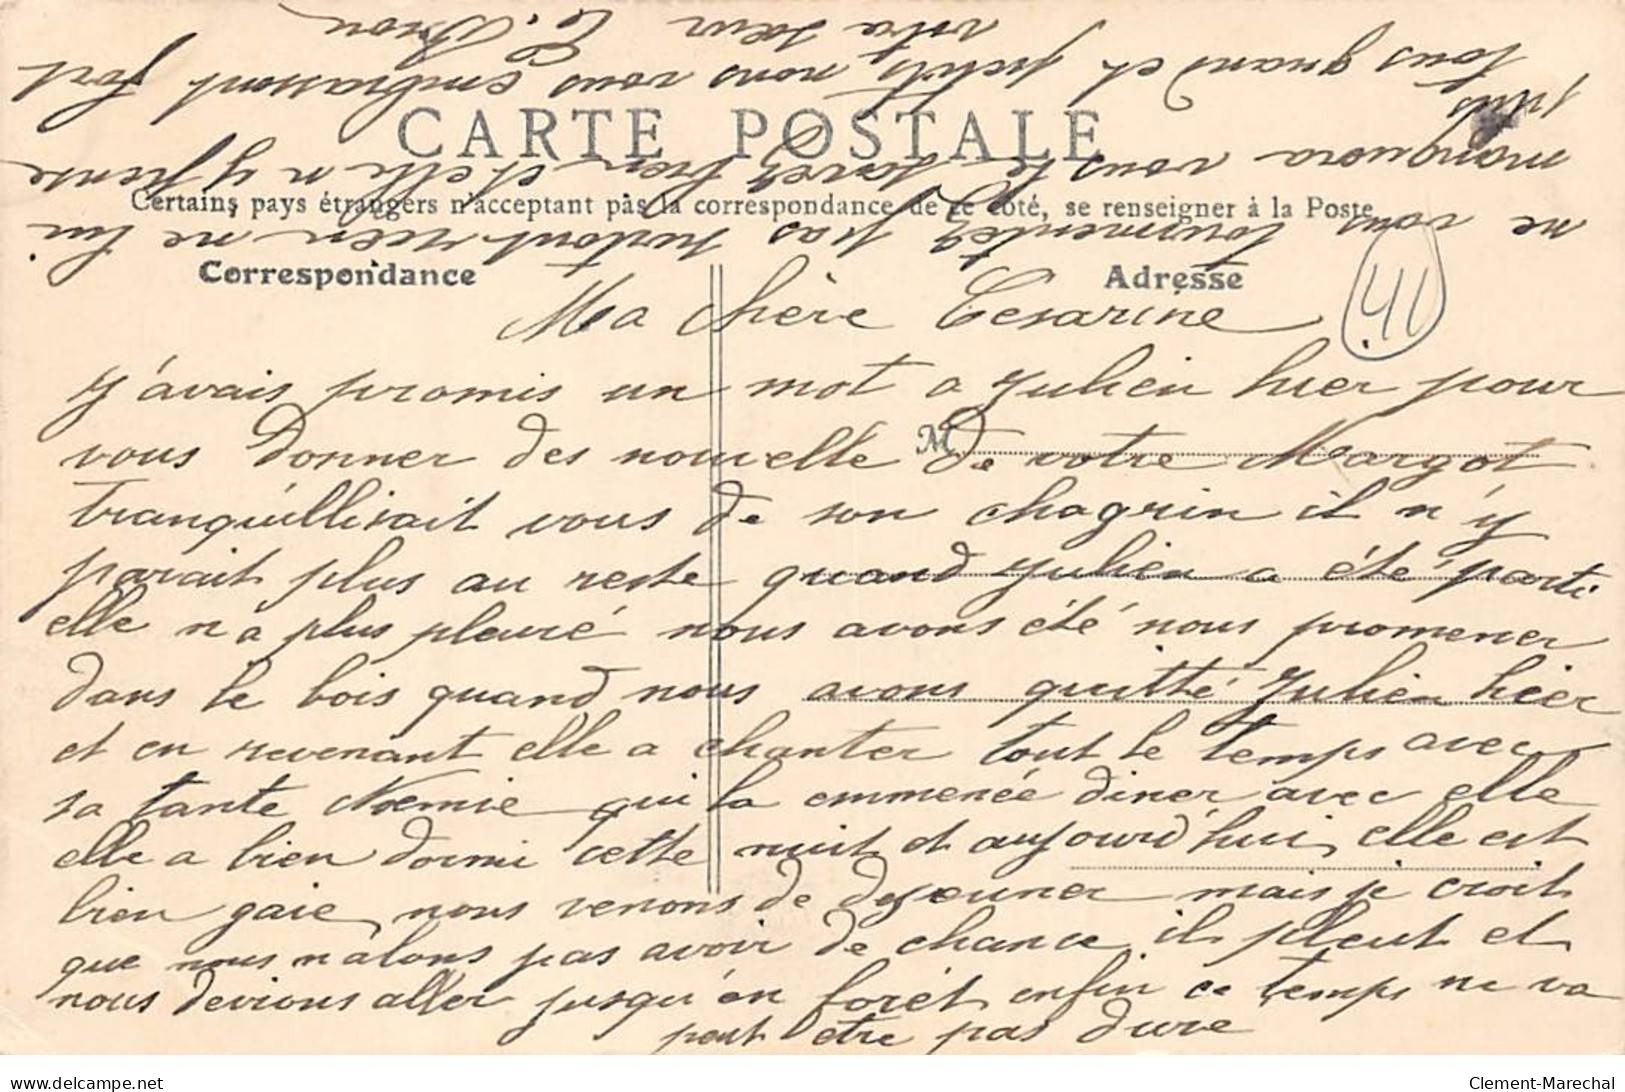 CARTE POSTALE
Certains pays étrangers n'acceptant pas la correspondance de ce côté, se renseigner à la Poste
Correspondance
Adresse
M
41
Ma chère Cesarine
j'avais promis un mot a Julien hier pour
vous donner des nouvelle de votre Margot
tranquillisait vous de son chagrin il n'y
parait plus au reste quand Julien a été parti
elle n'a plus pleuré nous avons été nous promener
dans le bois quand nous avons quitté Julien hier
et en revenant elle a chanter tout le temps avec
sa tante Noemie qui la emmenée diner avec elle
elle a bien dormi cette nuit et aujourd'hui, elle est
bien gaie, nous venons de dejeuner mais je croit
que nous n'alons pas avoir de chance, il pleut et
nous devions aller jusqu'en forêt enfin ce temps ne va
peut être pas dure
ne vous tourmentez pas surtout rien ne lui
manquera vous le savez bien et elle n'y pense
plus
tous grand et petits nous vous embrassont fort
votre sœur C.
Clement-Marechal
https://www.delcampe.net